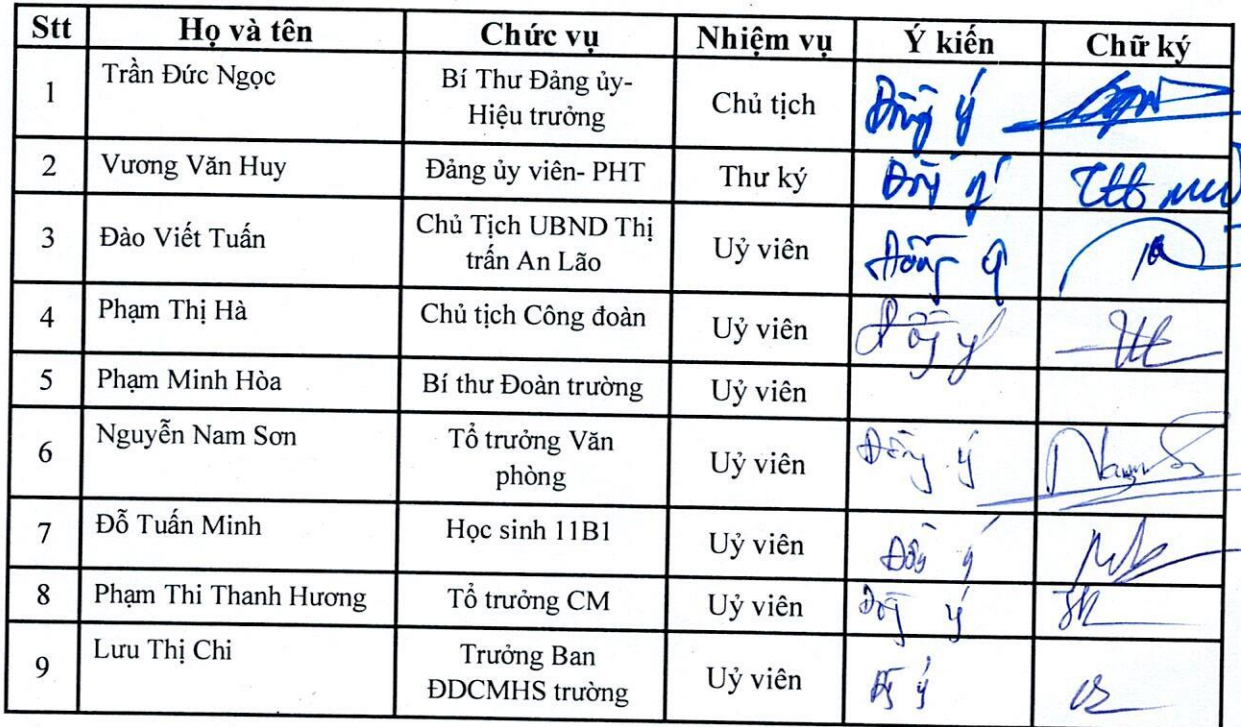 Stt Họ và tên Chức vụ Nhiệm vụ Ý kiến Chữ ký
1 Trần Đức Ngọc Bí Thư Đảng ủy- Hiệu trưởng Chủ tịch Đồng ý
2 Vương Văn Huy Đảng ủy viên- PHT Thư ký Đồng ý
3 Đào Viết Tuấn Chủ Tịch UBND Thị trấn An Lão Uỷ viên Đồng ý
4 Phạm Thị Hà Chủ tịch Công đoàn Uỷ viên Đồng ý
5 Phạm Minh Hòa Bí thư Đoàn trường Uỷ viên
6 Nguyễn Nam Sơn Tổ trưởng Văn phòng Uỷ viên Đồng ý
7 Đỗ Tuấn Minh Học sinh 11B1 Uỷ viên Đồng ý
8 Phạm Thi Thanh Hương Tổ trưởng CM Uỷ viên Đồng ý
9 Lưu Thị Chi Trưởng Ban ĐDCMHS trường Uỷ viên Đg ý